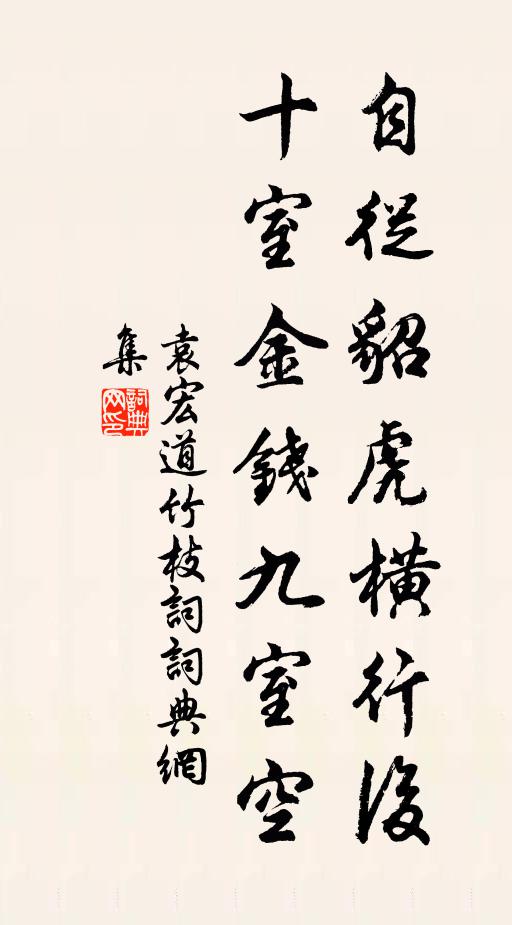 自從貂虎橫行後
十室金錢九室空
袁宏道竹枝詞詞典網
集
詞典网印